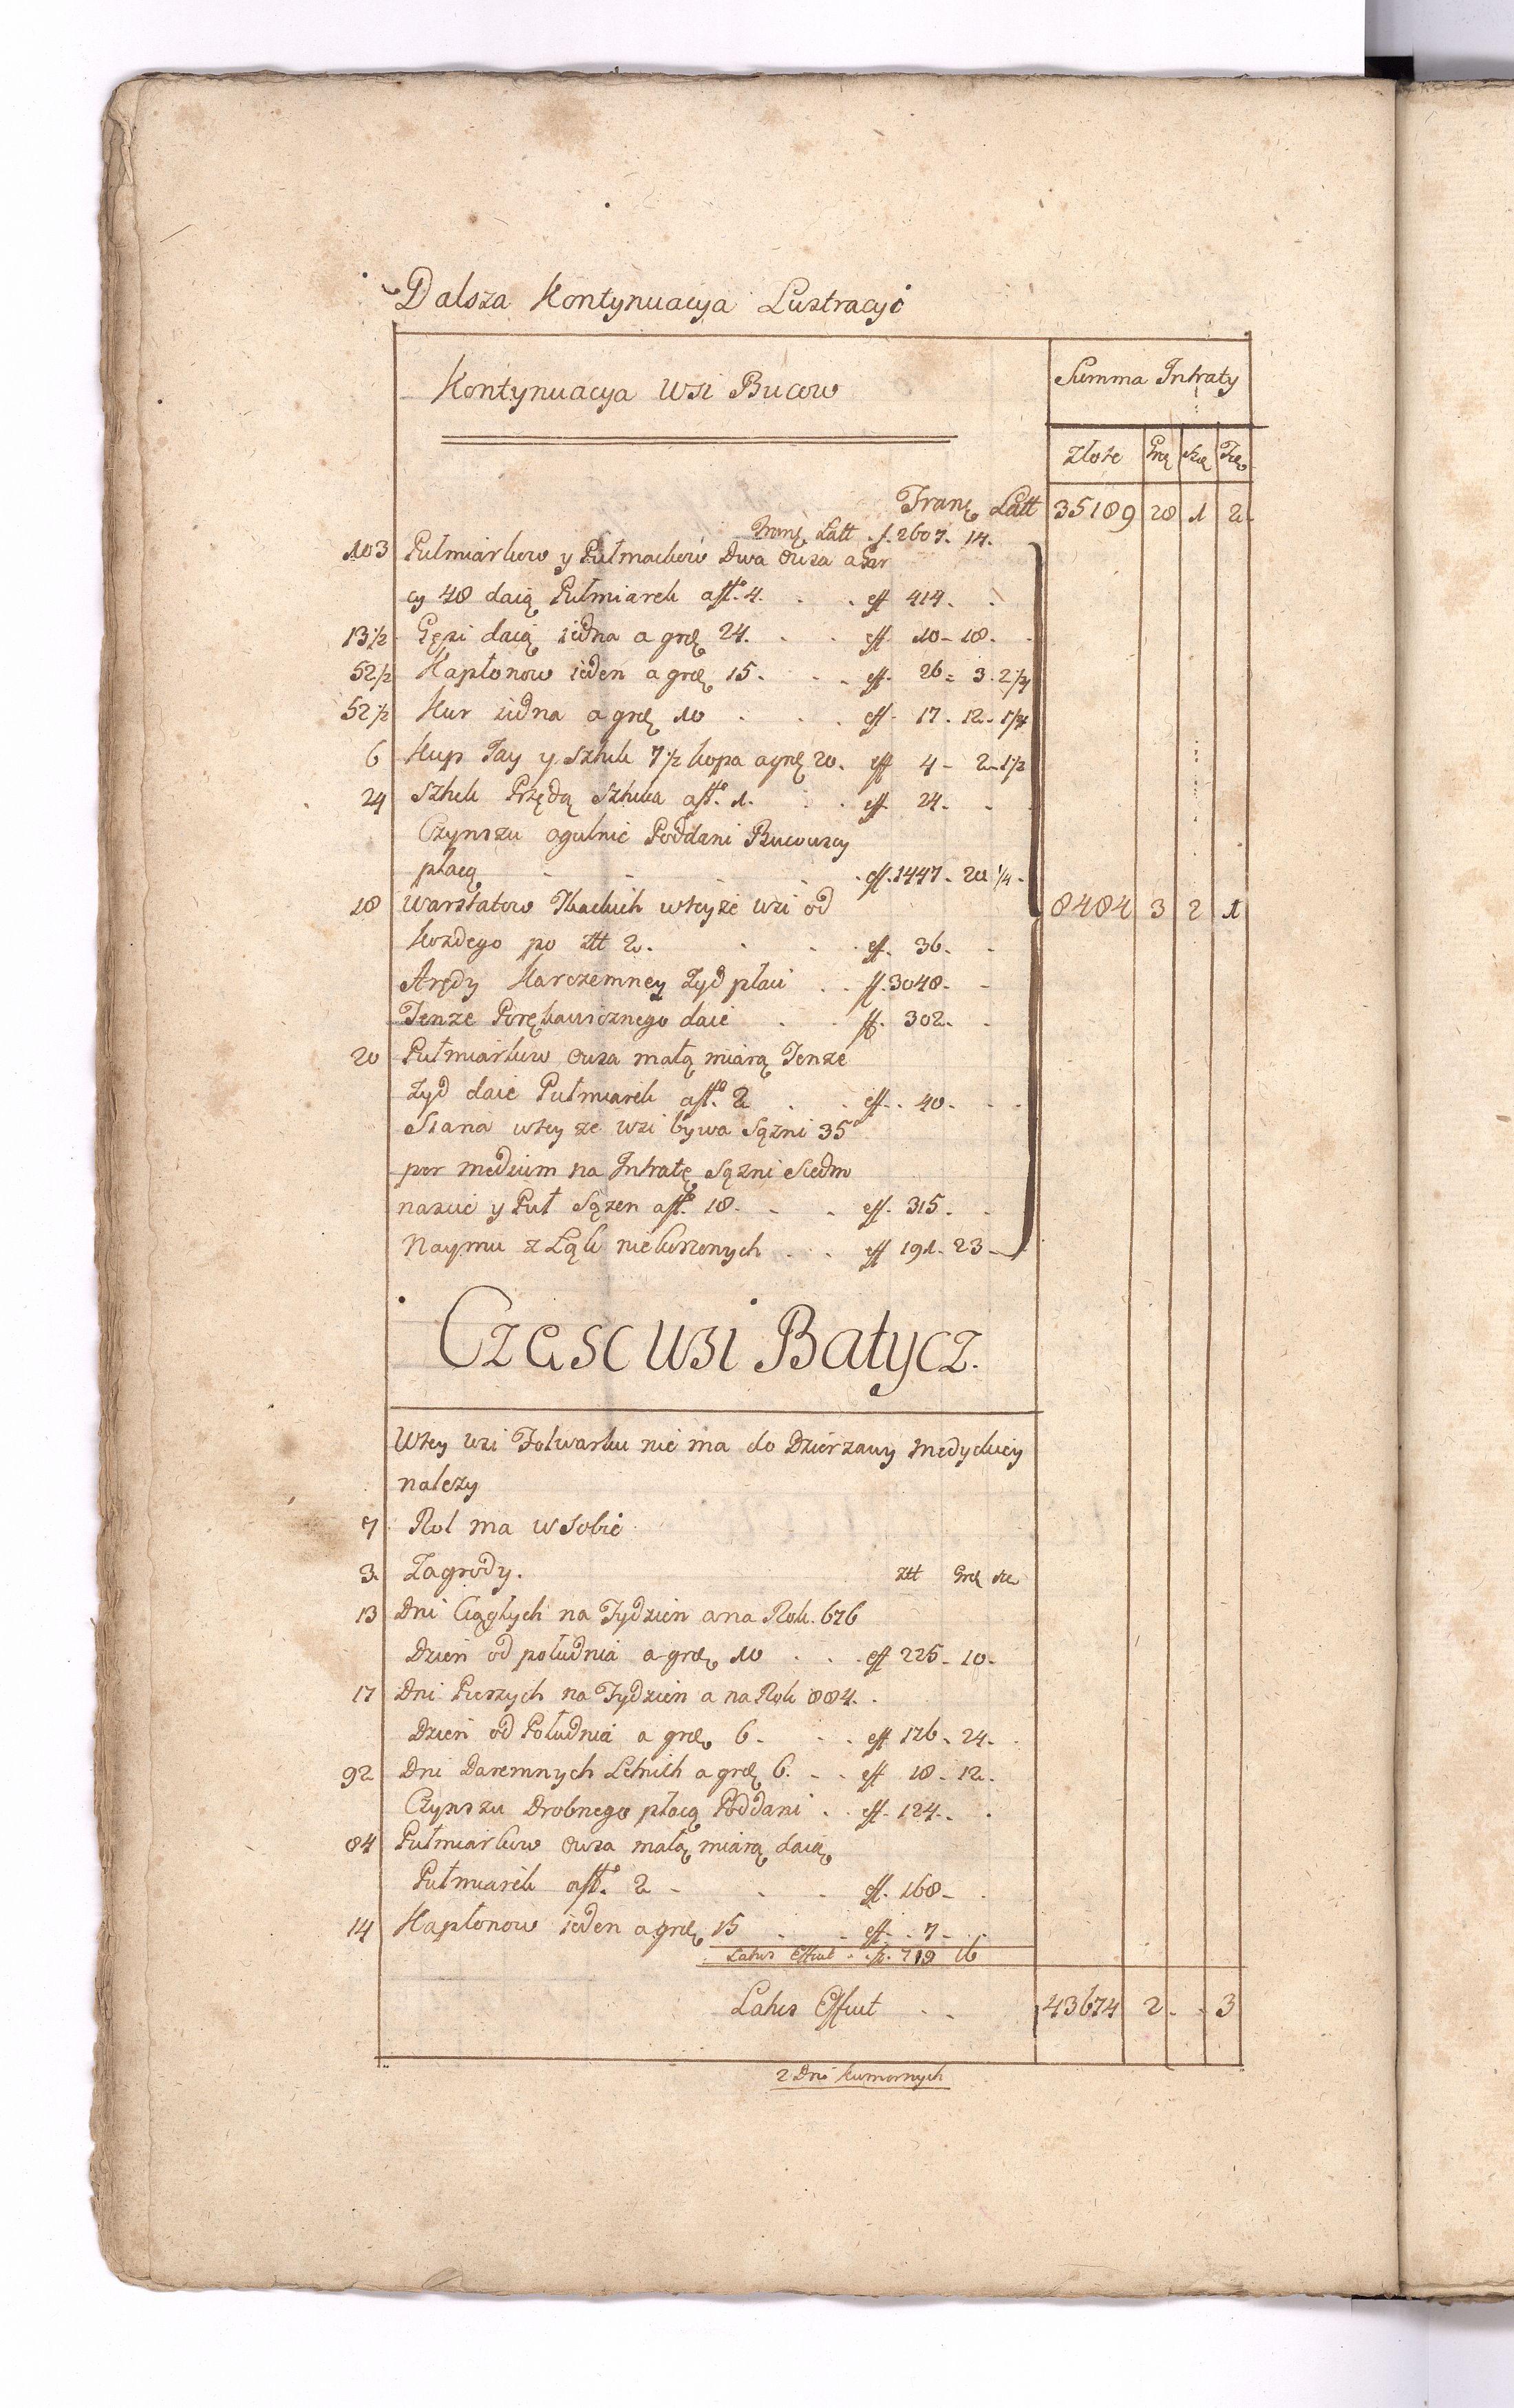 Dalsza Kontynuacya Lustracyi
Kontynuacya Wsi Bucow
Summa Intraty
złote Grę Szę Trę
Tranę Latt 35189 28 1 2
Tranę Latt . f. 2607. 14.
103 Pułmiarkow y Pułmackow Dwa owsa a Gar
cy 48 daią Pułmiarek a ff. 4. eff 414.
13 1/2 Gęsi daią iedna a grę 24. eff. 10 - 18.
52 1/2 Kapłonow ieden a grę 15. eff. 26 = 3. 2 1/4
52 1/2 Kur iedna a grę 10 eff. 17. 12. 1/4
6 Kup Jay y sztuk 7 1/2 kopa a grę 20. eff 4 - 2 - 1 1/2
24 Sztuk Przędą sztuka a ff. 1. eff. 24.
Czynszu ogulnie Poddani Bucowscy
płacą eff. 1447. 20 1/4
18 Warsztatow Tkackich wteyże wsi od 8484 3 2 1
kozdego po złt 2. eff. 36.
Arędy Karczemney Zyd płaci ff. 3048.
Tenże Porękawicznego daie ff. 302.
20 Pułmiarkow owsa małą miarą Tenże
Zyd daie Pułmiarek a ff. 2 eff. 40.
Siana wtey ze wsi bywa Sązni 35
per medium na Intratę Sązni Siedm
nascie y Puł Sązen a ff. 18. eff. 315.
Naymu z Łąk niekoszonych eff 191. 23
Częsc Wsi Batycz.
Wtey wsi Folwarku nie ma do Dzierzawy Medyckiey
nalezy
7 Rol ma w sobie
3. Zagrody. złt Grę szę
13 Dni Ciągłych na Tydzien a na Rok. 676
Dzien od południa a grę 10 eff 225 - 10.
17 Dni Pieszych na Tydzien a na Rok 884.
Dzien od Południa a grę 6. eff 176. 24.
92 Dni Daremnych Letnich a grę 6. eff 18 - 12.
Czynszu Drobnego płacą Poddani eff. 124.
84 Pułmiarkow owsa małą miarą daią
Pułmiarek a ff. 2 eff. 168.
14 Kapłonow ieden a grę 15 eff. 7
Latus Effiut ff. 719 16
Latus Effiut 43674 2. 3
2 Dni kumornych